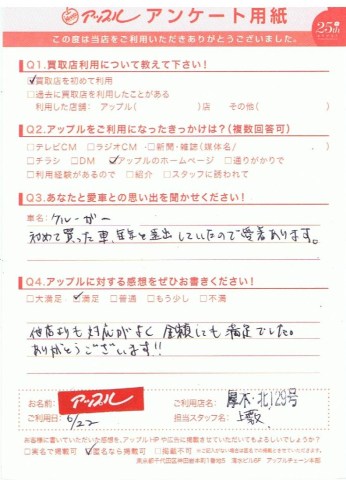 アップル アンケート用紙
25th
この度は当店をご利用いただきありがとうございました。
Q1.買取店利用について教えて下さい！
☑買取店を初めて利用
□過去に買取店を利用したことがある
利用した店舗：アップル（　　　）店　その他（　　　）
Q2.アップルをご利用になったきっかけは？（複数回答可）
□テレビCM □ラジオCM □新聞・雑誌（媒体名/　　　）
□チラシ □DM ☑アップルのホームページ □通りがかりで
□利用経験があるので □紹介 □スタッフに誘われて
Q3.あなたと愛車との思い出を聞かせてください！
車名：クルーガー
初めて買った車、
していたので愛着あります。
Q4.アップルに対する感想をぜひお書きください！
□大満足 ☑満足 □普通 □もう少し □不満
他店よりも対応がよく金額にも満足でした。
ありがとうございます!!
お名前： アップル ご利用店名： 厚木・北129号
ご利用日： 6/22 担当スタッフ名：
お客様に書いていただいた感想を、アップルHPや広告に掲載させていただいてもよろしいでしょうか？
□実名で掲載可 ☑匿名なら掲載可 □掲載不可